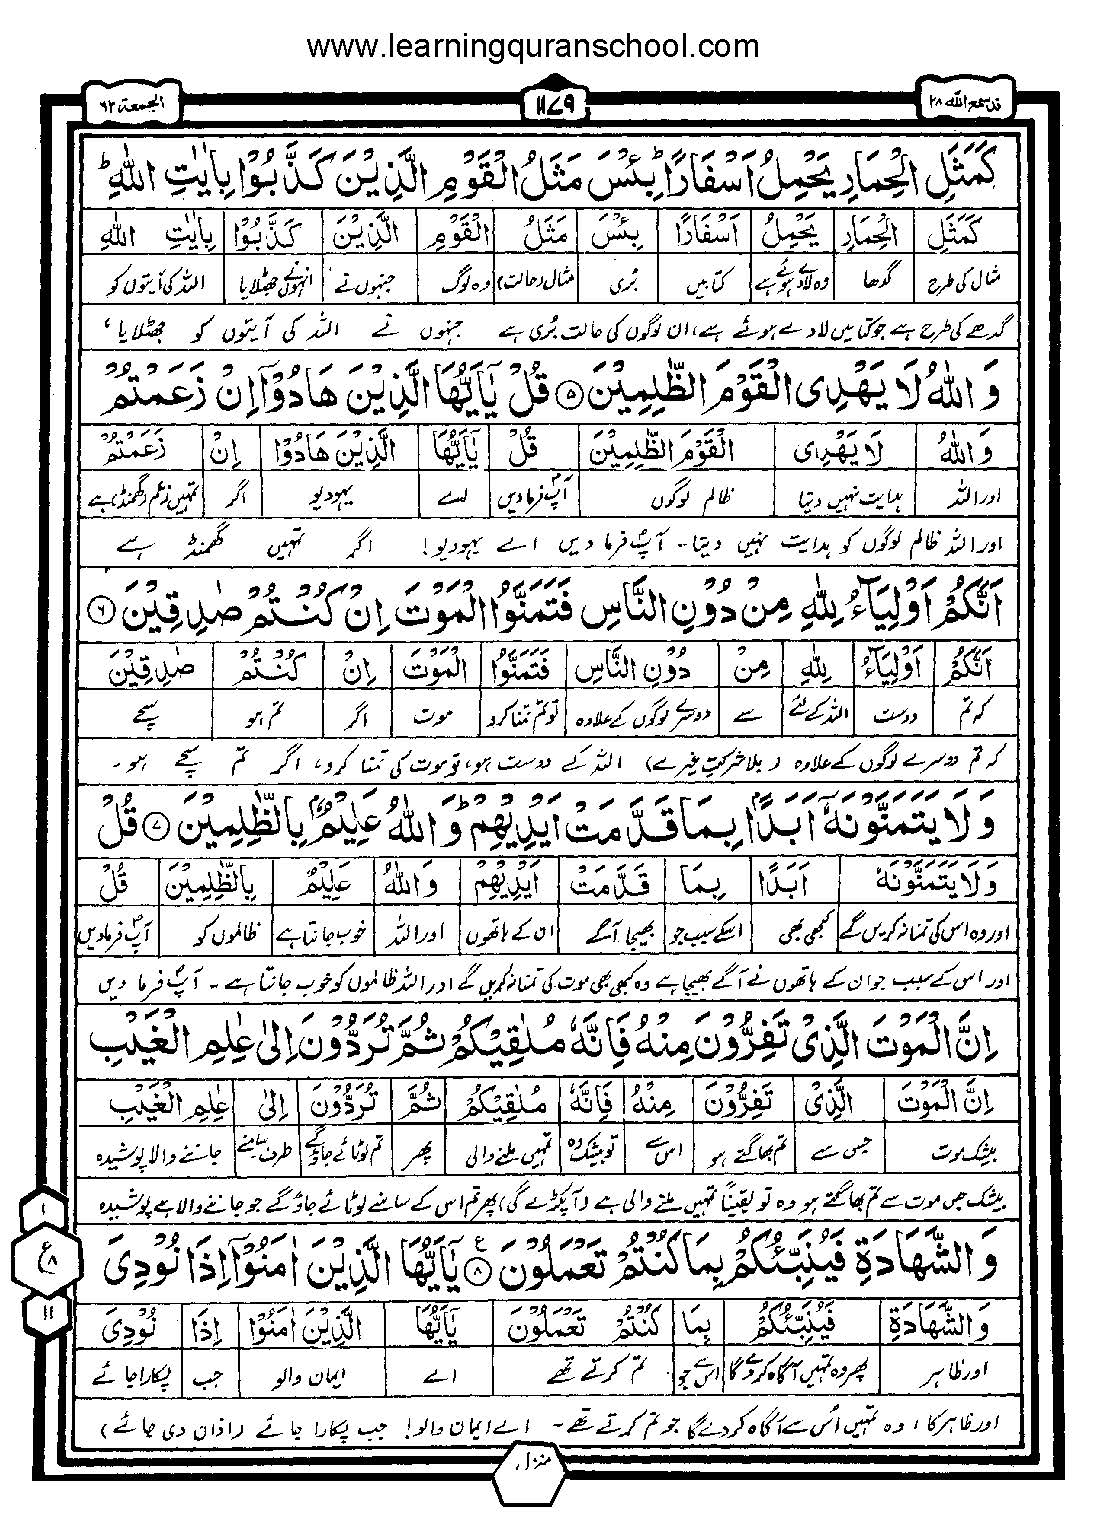 www.learningquranschool.com
قد سمع الله ۲۸
۱۱۷۹
الجمعة ۶۲
كَمَثَلِ الْحِمَارِ يَحْمِلُ اَسْفَارًا ؕ بِئْسَ مَثَلُ الْقَوْمِ الَّذِيْنَ كَذَّبُوْا بِاٰيٰتِ اللّٰهِ ؕ
كَمَثَلِ الْحِمَارِ يَحْمِلُ اَسْفَارًا بِئْسَ مَثَلُ الْقَوْمِ الَّذِيْنَ كَذَّبُوْا بِاٰيٰتِ اللّٰهِ
مثال کی طرح گدھا وہ لادے ہوئے ہے کتابیں بُری مثال (حالت) وہ لوگ جنہوں نے انہوں نے جھٹلایا اللہ کی آیتوں کو
گدھے کی طرح ہے جو کتابیں لادے ہوئے ہے، ان لوگوں کی حالت بُری ہے جنہوں نے اللہ کی آیتوں کو جھٹلایا،
وَاللّٰهُ لَا يَهْدِى الْقَوْمَ الظّٰلِمِيْنَ ۵ قُلْ يٰۤاَيُّهَا الَّذِيْنَ هَادُوْۤا اِنْ زَعَمْتُمْ
وَاللّٰهُ لَا يَهْدِى الْقَوْمَ الظّٰلِمِيْنَ قُلْ يٰۤاَيُّهَا الَّذِيْنَ هَادُوْا اِنْ زَعَمْتُمْ
اور اللہ ہدایت نہیں دیتا ظالم لوگوں آپؐ فرمادیں اے یہودیو اگر تمہیں زعم (گھمنڈ) ہے
اور اللہ ظالم لوگوں کو ہدایت نہیں دیتا۔ آپؐ فرما دیں اے یہودیو! اگر تمہیں گھمنڈ ہے
اَنَّكُمْ اَوْلِيَآءُ لِلّٰهِ مِنْ دُوْنِ النَّاسِ فَتَمَنَّوُا الْمَوْتَ اِنْ كُنْتُمْ صٰدِقِيْنَ ۶
اَنَّكُمْ اَوْلِيَآءُ لِلّٰهِ مِنْ دُوْنِ النَّاسِ فَتَمَنَّوُا الْمَوْتَ اِنْ كُنْتُمْ صٰدِقِيْنَ
کہ تم دوست اللہ کے لئے سے دوسرے لوگوں کے علاوہ تو تم تمنا کرو موت اگر تم ہو سچے
کہ تم دوسرے لوگوں کے علاوہ (بلا شرکتِ غیرے) اللہ کے دوست ہو، تو موت کی تمنا کرو، اگر تم سچے ہو۔
وَلَا يَتَمَنَّوْنَهٗۤ اَبَدًۢا بِمَا قَدَّمَتْ اَيْدِيْهِمْ ؕ وَاللّٰهُ عَلِيْمٌۢ بِالظّٰلِمِيْنَ ۷ قُلْ
وَلَا يَتَمَنَّوْنَهٗ اَبَدًا بِمَا قَدَّمَتْ اَيْدِيْهِمْ وَاللّٰهُ عَلِيْمٌ بِالظّٰلِمِيْنَ قُلْ
اور وہ اس کی تمنا نہ کریں گے کبھی بھی اسکے سبب جو بھیجا آگے ان کے ہاتھوں اور اللہ خوب جانتا ہے ظالموں کو آپؐ فرمادیں
اور اس کے سبب جو ان کے ہاتھوں نے آگے بھیجا ہے وہ کبھی بھی موت کی تمنا نہ کریں گے اور اللہ ظالموں کو خوب جانتا ہے۔ آپؐ فرما دیں
اِنَّ الْمَوْتَ الَّذِىْ تَفِرُّوْنَ مِنْهُ فَاِنَّهٗ مُلٰقِيْكُمْ ثُمَّ تُرَدُّوْنَ اِلٰى عٰلِمِ الْغَيْبِ
اِنَّ الْمَوْتَ الَّذِىْ تَفِرُّوْنَ مِنْهُ فَاِنَّهٗ مُلٰقِيْكُمْ ثُمَّ تُرَدُّوْنَ اِلٰى عٰلِمِ الْغَيْبِ
بیشک موت جس سے تم بھاگتے ہو اس سے تو بیشک وہ تمہیں ملنے والی پھر تم لوٹائے جاؤ گے طرف سامنے جاننے والا پوشیدہ
بیشک جس موت سے تم بھاگتے ہو وہ تو یقیناً تمہیں ملنے والی ہے (آ پکڑے گی) پھر تم اس کے سامنے لوٹائے جاؤ گے جو جاننے والا ہے پوشیدہ
وَالشَّهَادَةِ فَيُنَبِّئُكُمْ بِمَا كُنْتُمْ تَعْمَلُوْنَ ۸ ع يٰۤاَيُّهَا الَّذِيْنَ اٰمَنُوْۤا اِذَا نُوْدِىَ
وَالشَّهَادَةِ فَيُنَبِّئُكُمْ بِمَا كُنْتُمْ تَعْمَلُوْنَ يٰۤاَيُّهَا الَّذِيْنَ اٰمَنُوْا اِذَا نُوْدِىَ
اور ظاہر پھر وہ تمہیں آگاہ کر دے گا اس سے جو تم کرتے تھے اے ایمان والو جب پکارا جائے
اور ظاہر کا، وہ تمہیں اُس سے آگاہ کر دے گا جو تم کرتے تھے۔ اے ایمان والو! جب پکارا جائے (اذان دی جائے)
۱
ع
۸
۱۱
منزل